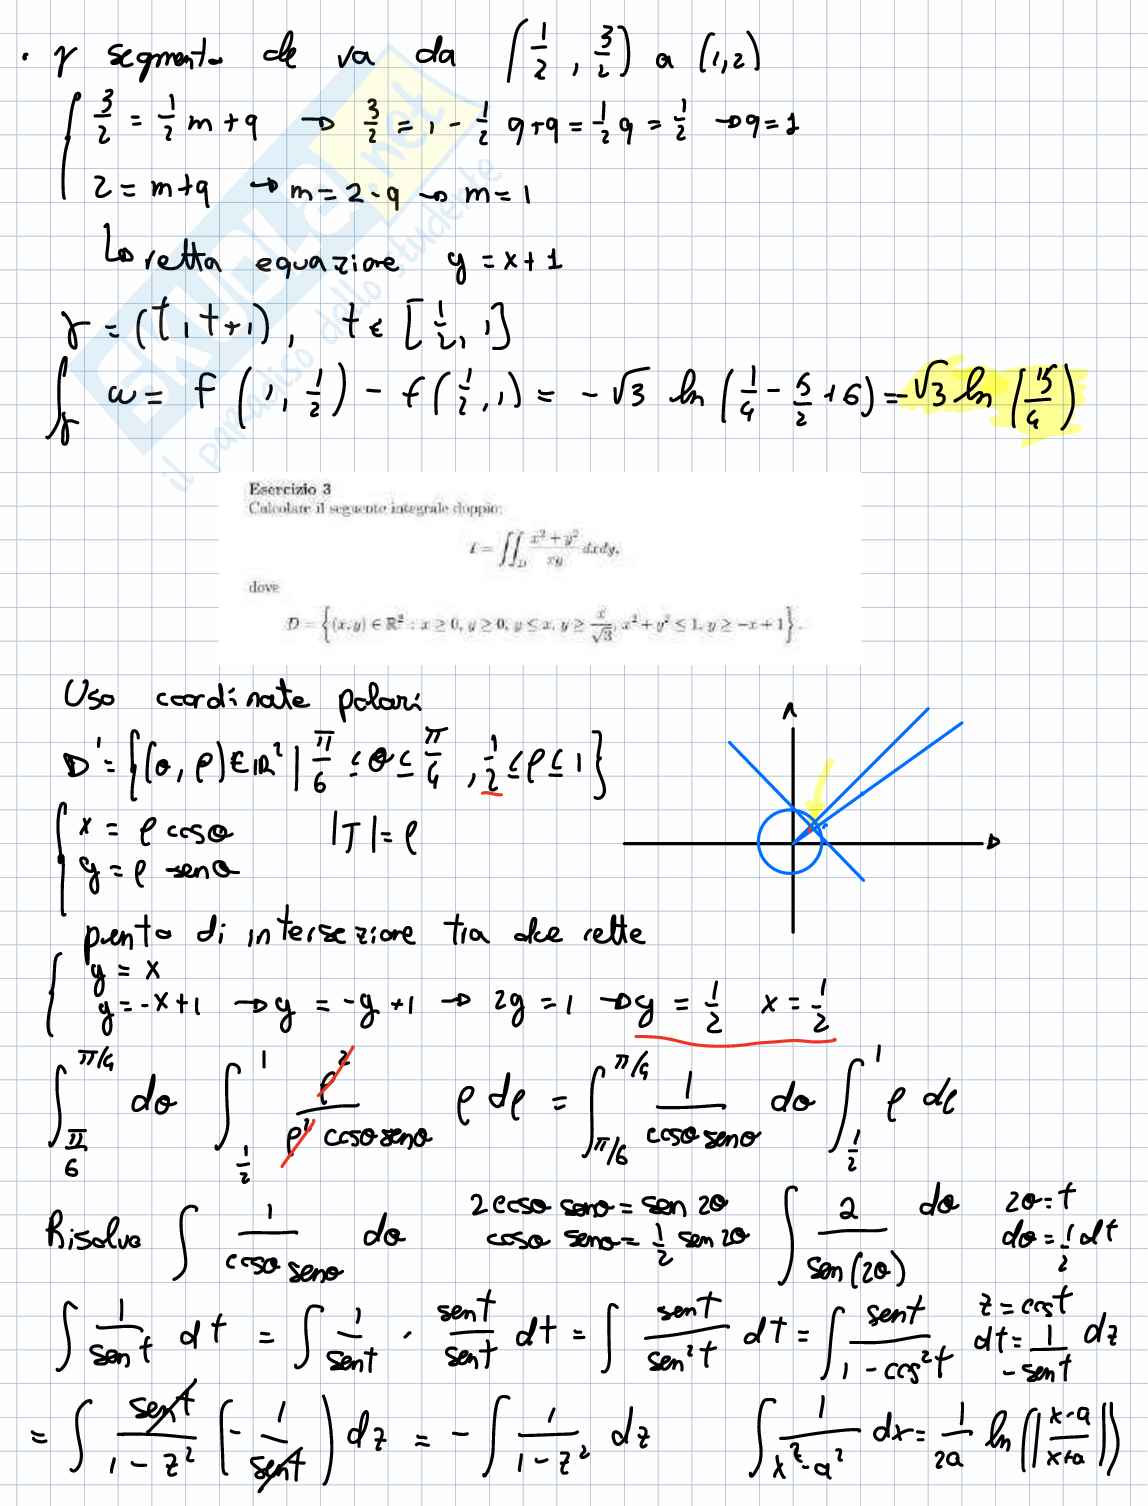 . γ segmento che va da (1/2, 3/2) a (1,2)
{ 3/2 = 1/2 m + q → 3/2 = 1 - 1/2 q + q = 1/2 q = 1/2 → q = 1
2 = m + q → m = 2 - q → m = 1
↳ retta equazione y = x + 1
γ = (t, t+1), t ∈ [1/2, 1]
∫γ ω = f(1, 1/2) - f(1/2, 1) = -√3 ln(1/4 - 5/2 + 6) = -√3 ln(15/4)
SKUOLA.net
il paradiso dello studente
Esercizio 3
Calcolate il seguente integrale doppio:
I = ∬_D (x² + y²)/(xy) dxdy,
dove
D = {(x, y) ∈ ℝ² : x ≥ 0, y ≥ 0, y ≤ x, y ≥ x/√3, x² + y² ≤ 1, y ≥ -x + 1}.
Uso coordinate polari
D' = {(θ, ρ) ∈ ℝ² | π/6 ≤ θ ≤ π/4, 1/2 ≤ ρ ≤ 1}
{ x = ρ cosθ |J| = ρ
y = ρ senθ
punto di intersezione tra due rette
{ y = x
y = -x+1 → y = -y+1 → 2y = 1 → y = 1/2 x = 1/2
∫_{π/6}^{π/4} dθ ∫_{1/2}^{1} ρ²/(ρ² cosθ senθ) ρ dρ = ∫_{π/6}^{π/4} 1/(cosθ senθ) dθ ∫_{1/2}^{1} ρ dρ
Risolvo ∫ 1/(cosθ senθ) dθ 2cosθ senθ = sen 2θ ∫ 2/sen(2θ) dθ 2θ = t
cosθ senθ = 1/2 sen 2θ dθ = 1/2 dt
∫ 1/sen t dt = ∫ 1/sen t · sen t/sen t dt = ∫ sen t/sen² t dt = ∫ sen t/(1 - cos² t) z = cos t
dt = 1/(-sen t) dz
= ∫ sen t/(1 - z²) (-1/sen t) dz = -∫ 1/(1 - z²) dz ∫ 1/(x² - a²) dx = 1/2a ln(|x-a/x+a|)